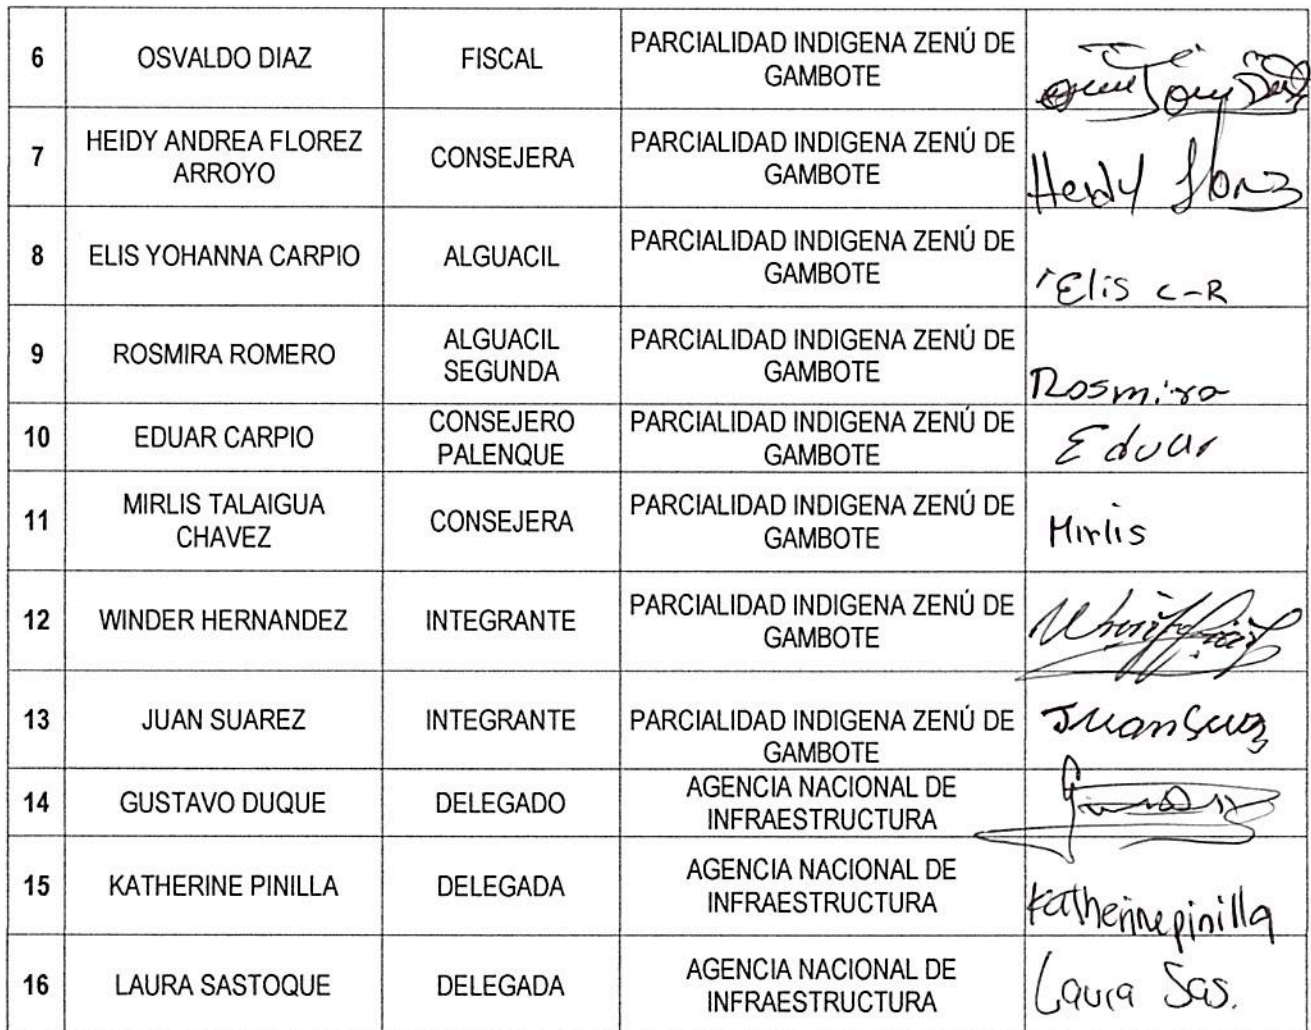 6 OSVALDO DIAZ FISCAL PARCIALIDAD INDIGENA ZENÚ DE
GAMBOTE
7 HEIDY ANDREA FLOREZ
ARROYO CONSEJERA PARCIALIDAD INDIGENA ZENÚ DE
GAMBOTE Heidy
8 ELIS YOHANNA CARPIO ALGUACIL PARCIALIDAD INDIGENA ZENÚ DE
GAMBOTE Elis C-R
9 ROSMIRA ROMERO ALGUACIL
SEGUNDA PARCIALIDAD INDIGENA ZENÚ DE
GAMBOTE Rosmira
10 EDUAR CARPIO CONSEJERO
PALENQUE PARCIALIDAD INDIGENA ZENÚ DE
GAMBOTE Eduar
11 MIRLIS TALAIGUA
CHAVEZ CONSEJERA PARCIALIDAD INDIGENA ZENÚ DE
GAMBOTE Mirlis
12 WINDER HERNANDEZ INTEGRANTE PARCIALIDAD INDIGENA ZENÚ DE
GAMBOTE
13 JUAN SUAREZ INTEGRANTE PARCIALIDAD INDIGENA ZENÚ DE
GAMBOTE Juan
14 GUSTAVO DUQUE DELEGADO AGENCIA NACIONAL DE
INFRAESTRUCTURA
15 KATHERINE PINILLA DELEGADA AGENCIA NACIONAL DE
INFRAESTRUCTURA Katherine pinilla
16 LAURA SASTOQUE DELEGADA AGENCIA NACIONAL DE
INFRAESTRUCTURA Laura Sas.